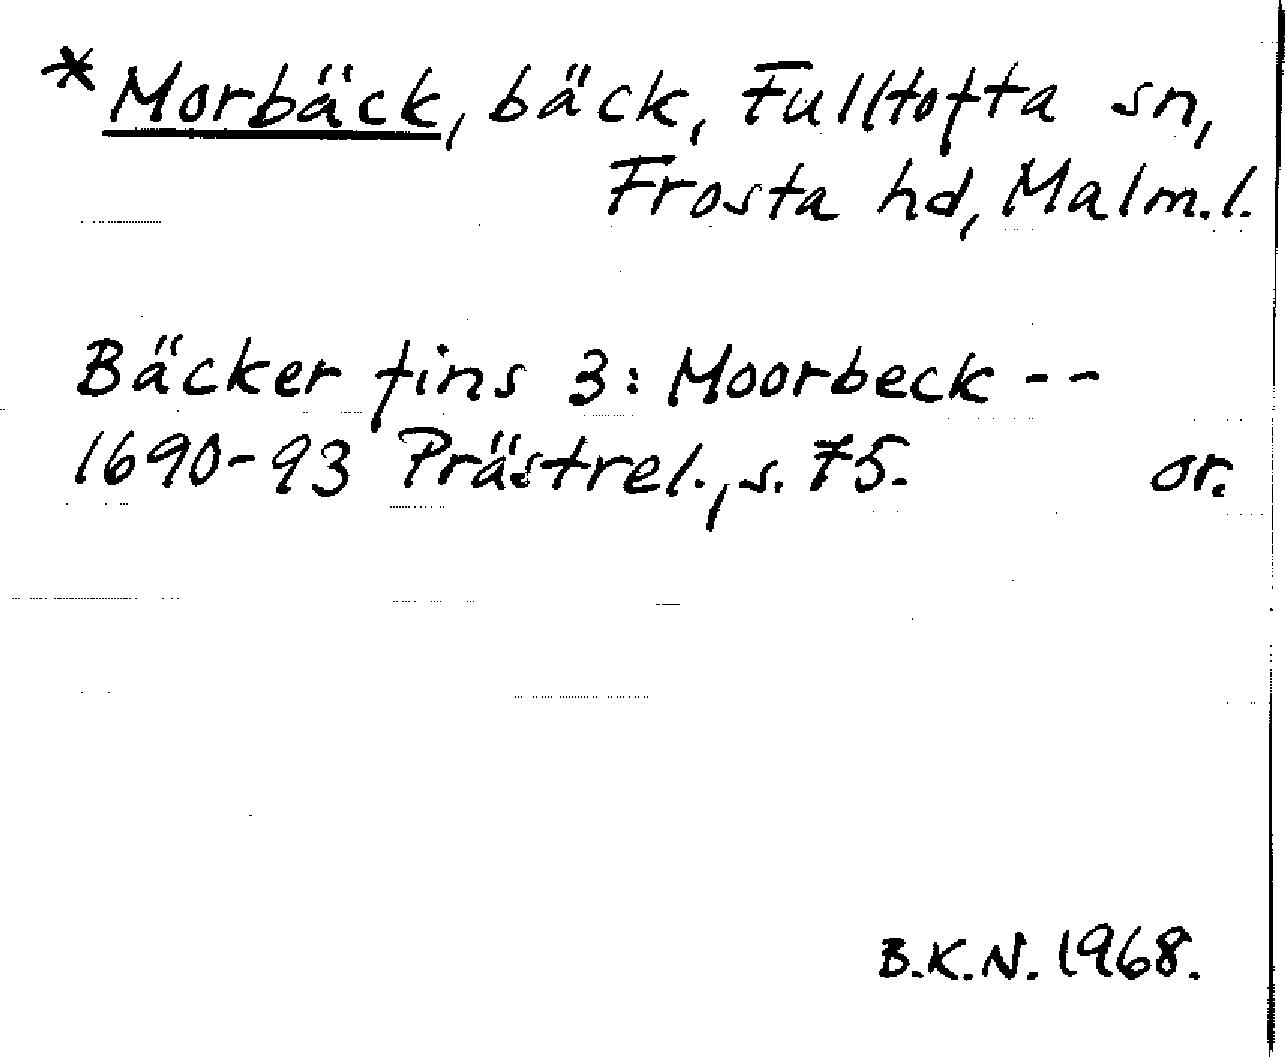 *Morbäck, bäck, Fulltofta sn,
Frosta hd, Malm.l.
Bäcker fins 3: Moorbeck --
1690-93 Prästrel., s. 75. or.
B.K.N. 1968.